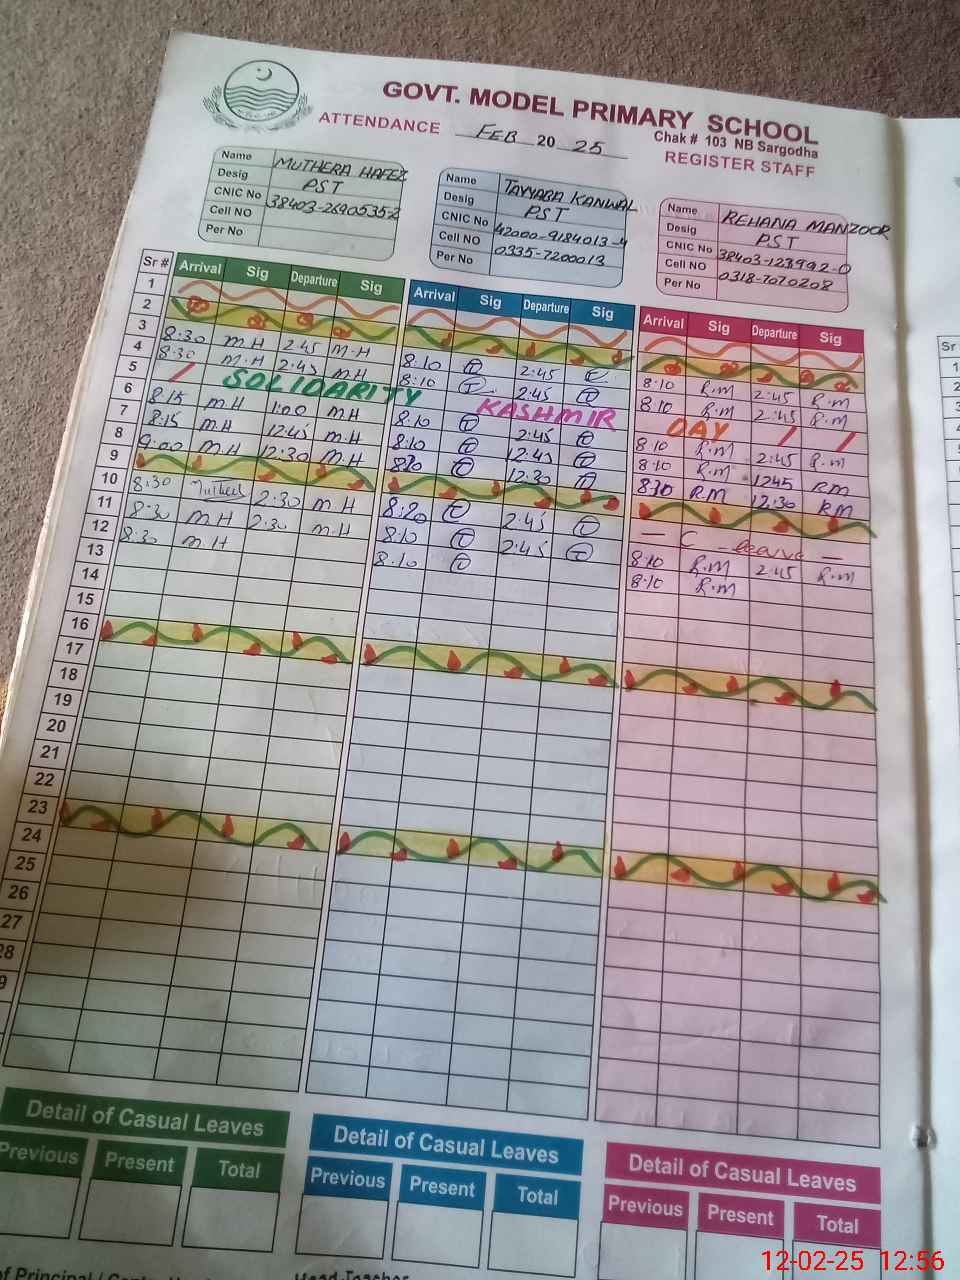 GOVT. MODEL PRIMARY SCHOOL
Chak # 103 NB Sargodha
ATTENDANCE FEB 20 25
REGISTER STAFF
Name MUTHERA HAFEZ
Desig PST
CNIC No 38403-2690535-2
Cell NO
Per No
Name TAYYABA KANWAL
Desig PST
CNIC No 42000-9184013-4
Cell NO 0335-7200013
Per No
Name REHANA MANZOOR
Desig PST
CNIC No 38403-123992-0
Cell NO 0318-7070208
Per No
Sr # Arrival Sig Departure Sig Arrival Sig Departure Sig Arrival Sig Departure Sig
1
2
3 8:30 M.H 2:45 M-H 8:10 T 2:45 T 8:10 R.M 2:45 R.M
4 8:30 M.H 2:45 M.H 8:10 T 2:45 T 8:10 R.M 2:45 R.M
5 SOLIDARITY KASHMIR DAY
6 8:15 M.H 1:00 M.H 8:10 T 2:45 T 8:10 R.M 2:45 R.M
7 8:15 M.H 12:45 M.H 8:10 T 12:45 T 8:10 R.M 1245 RM
8 9:00 M.H 12:30 M.H 8:10 T 12:30 T 8:10 RM 12:30 RM
9
10 8:30 2:30 M H 8:20 T 2:45 T — C leave —
11 8:30 M.H 2:30 M.H 8:10 T 2:45 T 8:10 R.M 2:45 R.M
12 8:30 M.H 8:10 T 8:10 R.M
13
14
15
16
17
18
19
20
21
22
23
24
25
26
27
28
9
Detail of Casual Leaves Detail of Casual Leaves Detail of Casual Leaves
Previous Present Total Previous Present Total Previous Present Total
of Principal Head Teacher
12-02-25 12:56